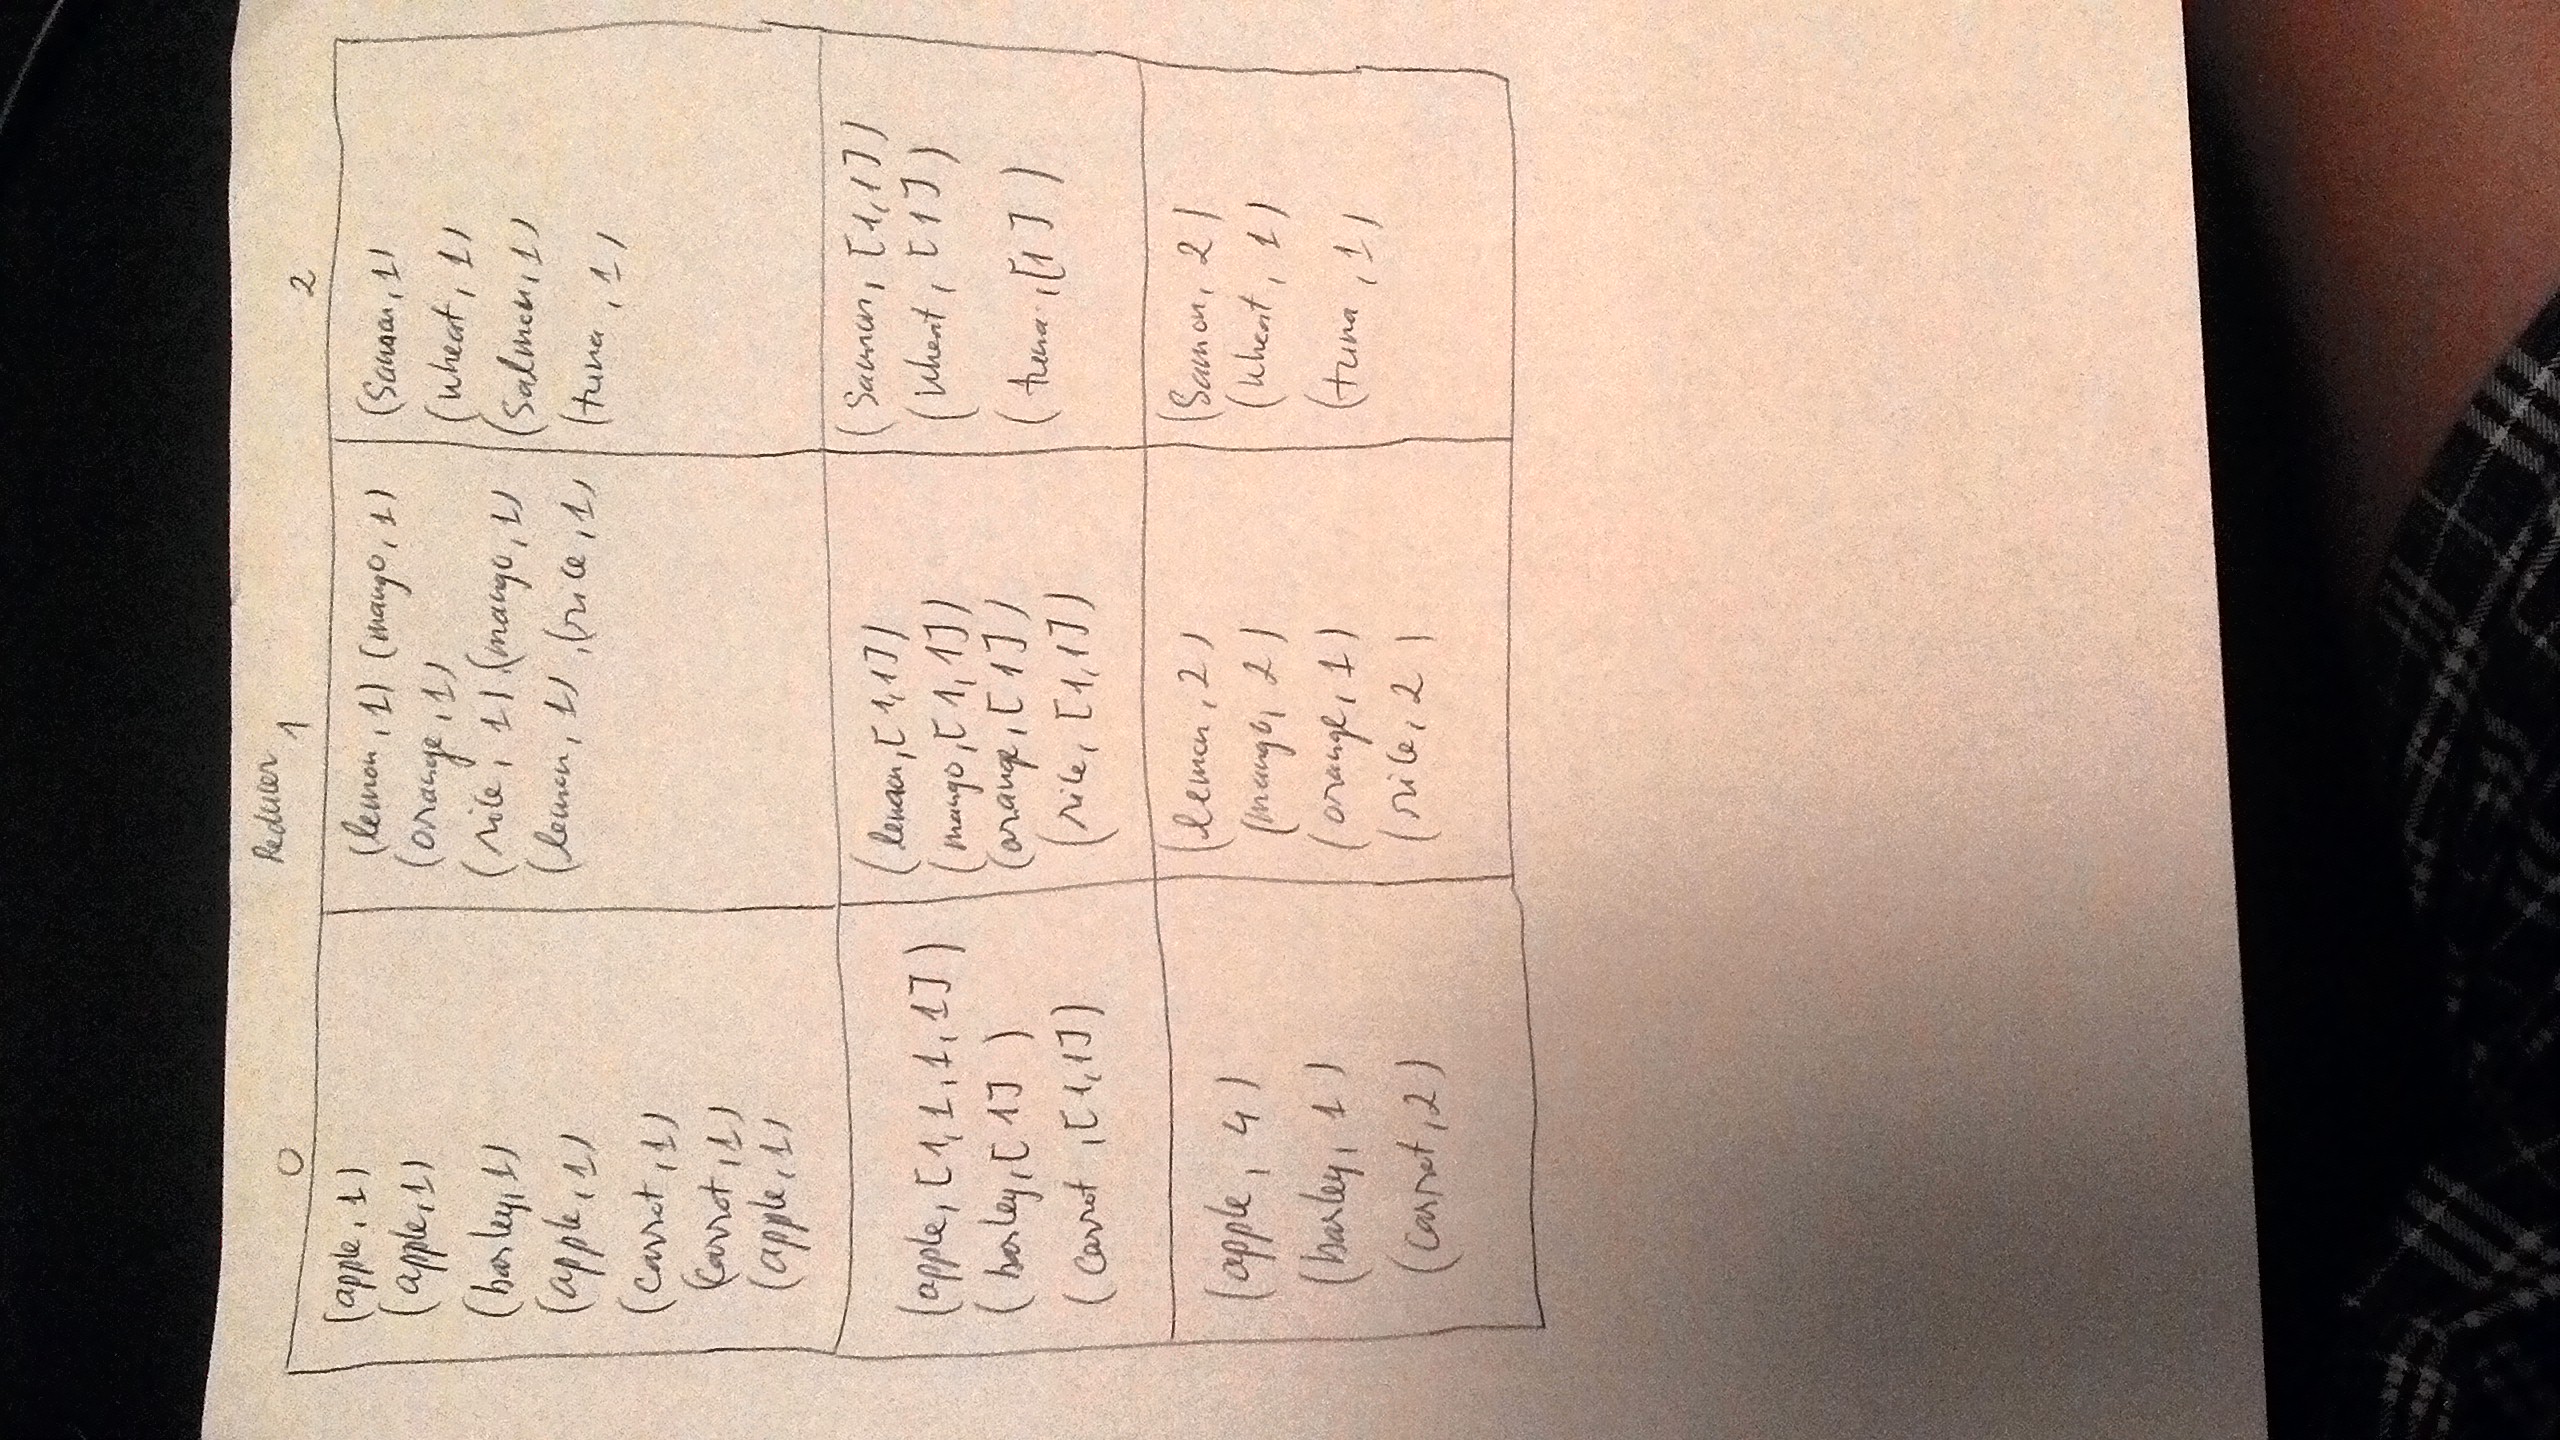 Reducer
0 1 2
(apple, 1)
(apple, 1)
(barley, 1)
(apple, 1)
(carrot, 1)
(carrot, 1)
(apple, 1)
(lemon, 1) (mango, 1)
(orange, 1)
(rice, 1) (mango, 1)
(lemon, 1) , (rice, 1)
(Samon, 1)
(wheat, 1)
(Salmon, 1)
(tuna, 1)
(apple, [1, 1, 1, 1])
(barley, [1])
(carrot, [1,1])
(lemon, [1,1])
(mango, [1,1])
(orange, [1])
(rice, [1,1])
(Samon, [1,1])
(wheat, [1])
(tuna, [1])
(apple, 4)
(barley, 1)
(carrot, 2)
(lemon, 2)
(mango, 2)
(orange, 1)
(rice, 2)
(Samon, 2)
(wheat, 1)
(tuna, 1)